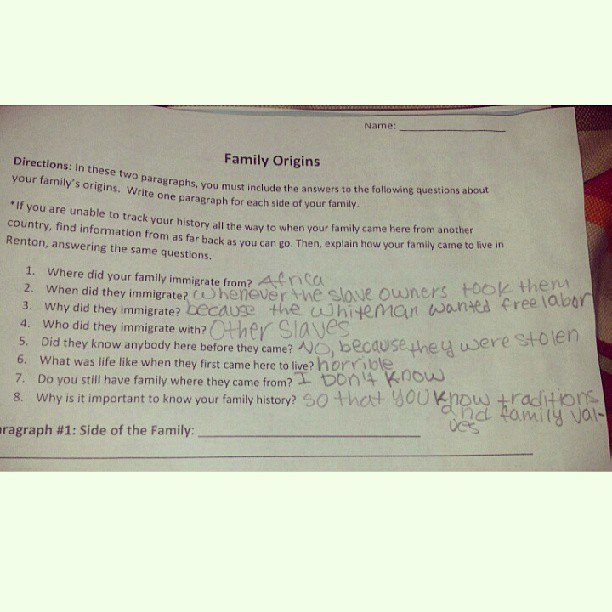 Name:
Family Origins
Directions: In these two paragraphs, you must include the answers to the following questions about
your family's origins. Write one paragraph for each side of your family.
*If you are unable to track your history all the way to when your family came here from another
country, find information from as far back as you can go. Then, explain how your family came to live in
Renton, answering the same questions.
1. Where did your family immigrate from? Africa
2. When did they immigrate? Whenever the slave owners took them
3. Why did they immigrate? because the whiteman wanted free labor
4. Who did they immigrate with? Other slaves
5. Did they know anybody here before they came? NO, because they were stolen
6. What was life like when they first came here to live? horrible
7. Do you still have family where they came from? I Don't know
8. Why is it important to know your family history? so that you know traditions
and family val-
ues
ragraph #1: Side of the Family: